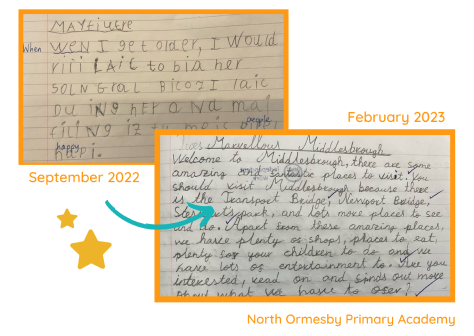 MAYfiutre
When
WeN I get older, I WOULd
rili LAIC to bia her
SOLN GraL BICOSI laic
DU iNG her a Nd mai
people
filiNG iz to me is
happy
hapi.
September 2022
February 2023
Marvellous Middlesbrough
Welcome to Middlesbrough, there are some
amazing and places to visit. You
should visit Middlesbrough because there
is the Transport Bridge, Newport Bridge,
park, and lots more places to see
and do. Apart from these amazing places,
we have plenty of shops, places to eat,
plenty for your children to do and we
have lots of entertainment to. Are you
interested, read on and finds out more
about what we have to offer!
North Ormesby Primary Academy